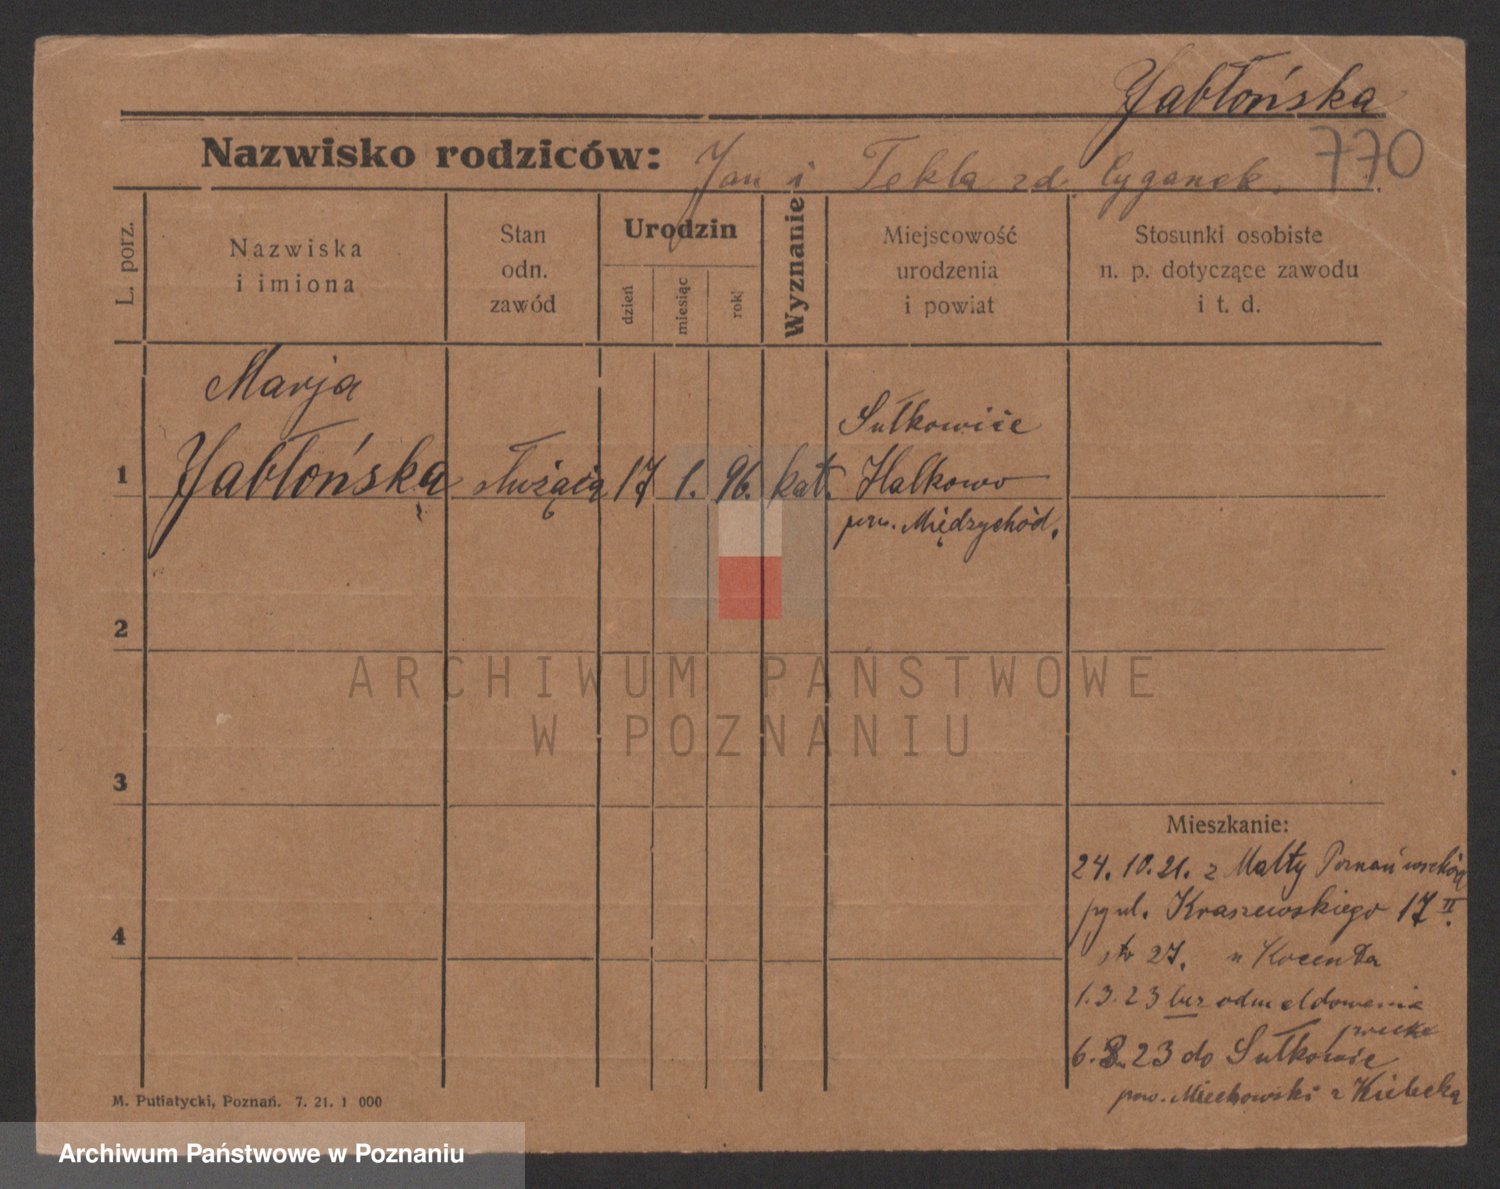 Jabłońska
770
Nazwisko rodziców: Jan i Tekla zd. Cyganek.
L. porz.
Nazwiska
i imiona
Stan
odn.
zawód
Urodzin
dzień
miesiąc
rok
Wyznanie
Miejscowość
urodzenia
i powiat
Stosunki osobiste
n. p. dotyczące zawodu
i t. d.
Marja
1 Jabłońska służąca 17 1. 96. kat.
Sułkowice
Halkowo
pow. Międzychód.
2
3
4
Mieszkanie:
24. 10. 21. z Małty Poznańsk
ul. Kraszewskiego 17 II.
27. u Kocenta
1. 3. 23 bez odmeldowania
6. 3. 23 do Sułkowic
pow. Miechowski z Kielecka
M. Putiatycki, Poznań. 7. 21. 1 000
ARCHIWUM PAŃSTWOWE
W POZNANIU
Archiwum Państwowe w Poznaniu